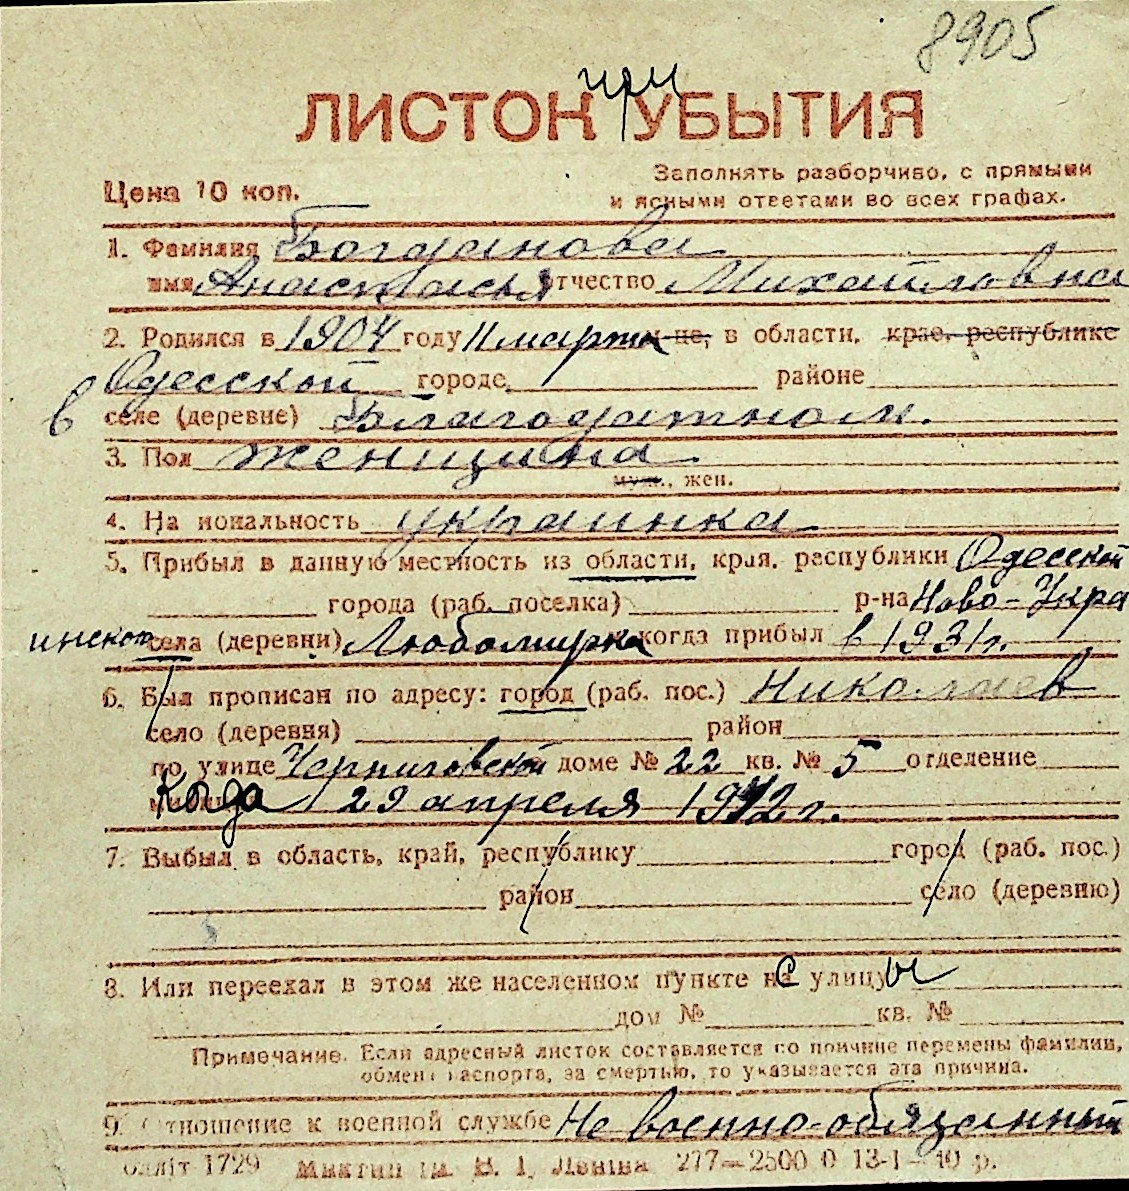 8905
при
ЛИСТОК УБЫТИЯ
Цена 10 коп.
Заполнять разборчиво, с прямыми
и ясными ответами во всех графах.
1. Фамилия Богданова
имя Анастасья отчество Михайловна
2. Родился в 1904 году 11 марта м-це, в области, крае, республике
Одесской городе районе
в селе (деревне) Благодатном.
3. Пол женщина
муж., жен.
4. На иональность украинка
5. Прибыл в данную местность из области, края, республики Одесской
города (раб. поселка) р-на Ново-Укра
инской села (деревни) Любомирка и когда прибыл в 1931 г.
6. Был прописан по адресу: город (раб. пос.) Николаев
село (деревня) район
по улице Черниговской доме № 22 кв. № 5 отделение
Когда 29 апреля 1942 г.
7. Выбыл в область, край, республику город (раб. пос.)
район село (деревню)
8. Или переехал в этом же населенном пункте с улицы
дом № кв. №
Примечание. Если адресный листок составляется по причине перемены фамилии,
обмен паспорта, за смертью, то указывается эта причина.
9. Отношение к военной службе Не военно-обязанный
олліт 1729 Миктип ім. В. І. Леніна 277—2500 0 13-I—40 р.